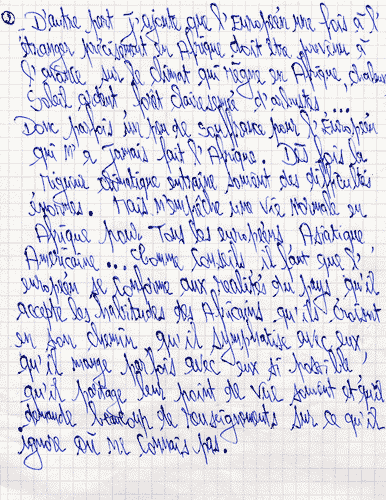 ③ D'autre part J'ajoute que l'Européen une fois à l'
étranger précisément en Afrique doit être prévenu à
l'avance sur le climat qui règne en Afrique, chaleur
Soleil ardent forêt clairsemée d'arbustes...
Donc parfois un peu de souffrance pour l'Européen
qui n'a jamais fait l'Afrique. Dès fois le
régime climatique entraîne souvent des difficultés
énormes. Mais n'empêche une vie Normale en
Afrique pour Tous les européens Asiatique
Américaine... Comme Conseils il faut que l'
européen se conforme aux réalités du pays qu'il
accepte les habitudes des Africains qu'ils croisent
en son chemin qu'il sympathise avec eux
qu'il mange parfois avec eux si possible,
qu'il partage leur point de vue souvent et qu'il
demande beaucoup de renseignements sur ce qu'il
ignore où ne connais pas.